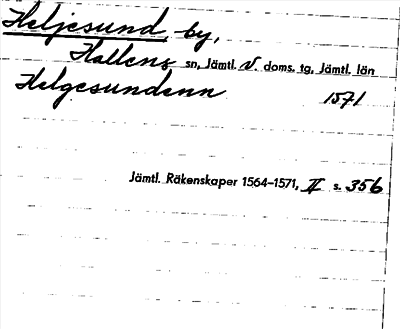 Heljesund by,
Hallens sn, Jämtl. V. doms. tg, Jämtl. län
Helgesundenn 1571
Jämtl. Räkenskaper 1564–1571, II s. 356